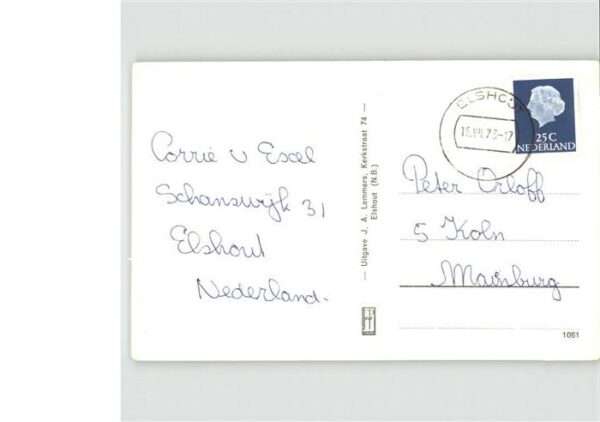 Corrie v Escel
Schanswijk 31
Elshout
Nederland.
— Uitgave J. A. Lammers, Kerkstraat 74 —
Elshout (N.B.)
ELSHOUT
25 C
NEDERLAND
Peter Orloff
5 Koln
Mainburg
1061